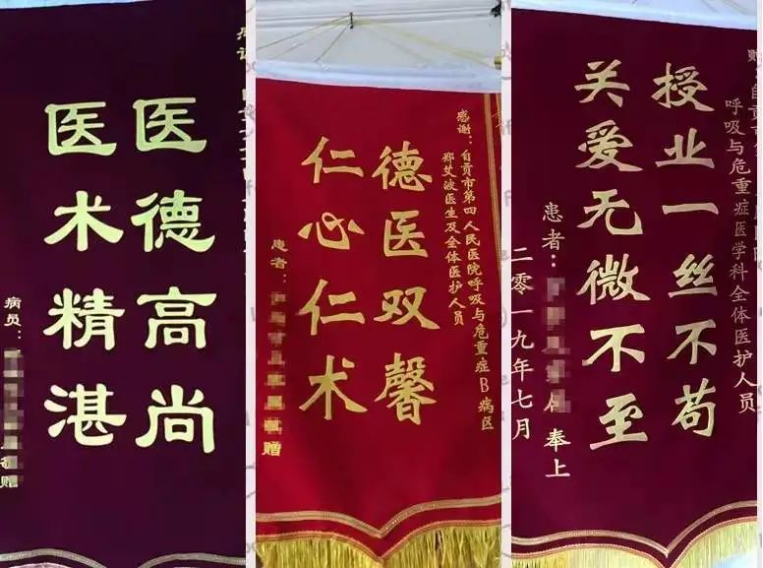 医德高尚
医术精湛
病员：
赠
感谢：自贡市第四人民医院呼吸与危重症B病区
郑艾波医生及全体医护人员
德医双馨
仁心仁术
患者：
赠
呼吸与危重症医学科全体医护人员
授业一丝不苟
关爱无微不至
患者：
奉上
二零一九年七月